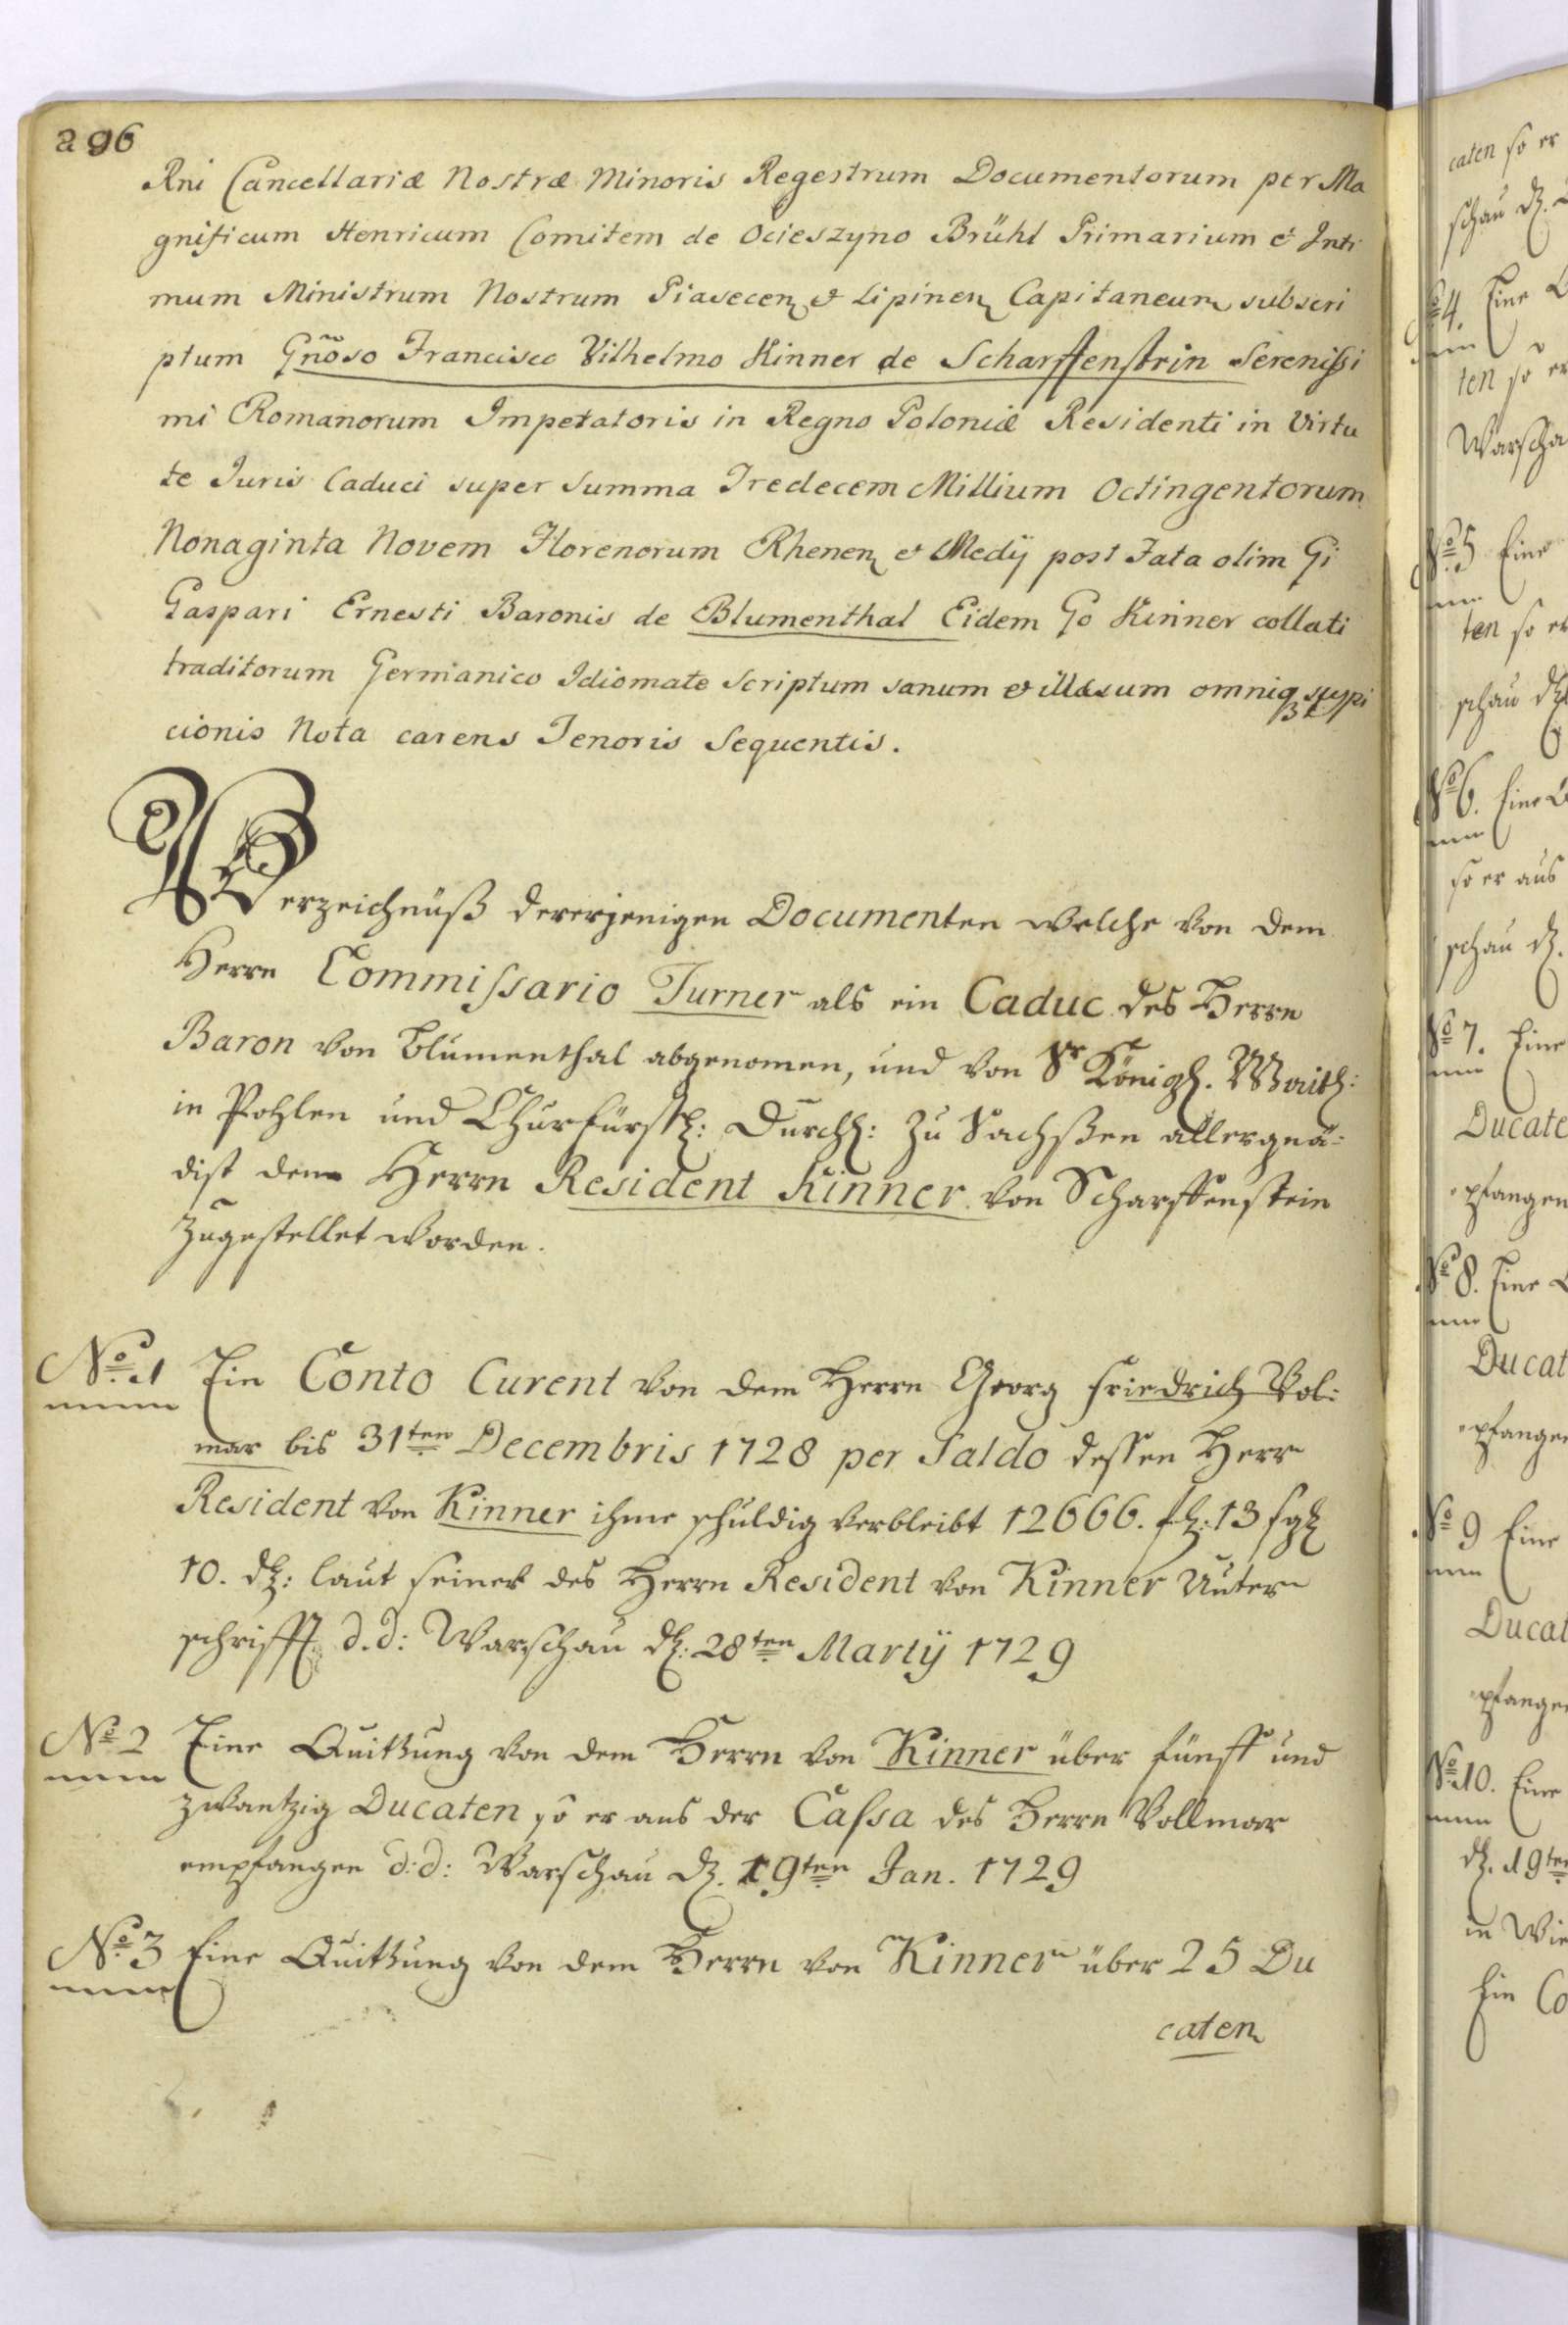 296
Rni Cancellariæ Nostræ Minoris Regestrum Documentorum per Ma
gnificum Henricum Comitem de Ocieszyno Brühl Primarium & Inti
mum Ministrum Nostrum Piasecen & Lipinen Capitaneum subscri
ptum Gnõso Francisco Vilhelmo Kinner de Scharffenstein Serenissi
mi Romanorum Impetatoris in Regno Poloniæ Residenti in Virtu
te Juris Caduci super Summa Tredecem Millium Octingentorum
Nonaginta Novem Florenorum Rhenen & Medij post Fata olim Gi
Gaspari Ernesti Baronis de Blumenthal Eidem Go Kinner collati
traditorum Germanico Idiomate Scriptum sanum & illæsum omniq suspi
cionis Nota carens Tenoris Sequentis.
Verzeichnüß dererjenigen Documenten welche von dem
Herrn Commissario Turner als ein Caduc des Herrn
Baron von Blumenthal abgenomen, und von Sr Königl. Maith:
in Pohlen und Churfürstl: Durchl: zu Sachßen allergnä:
dist dem Herrn Resident Kinner von Scharffenstein
zugestellet worden.
No. 1 Ein Conto Curent von dem Herrn Georg Friedrich Vol:
mar bis 31ten Decembris 1728 per Saldo dessen Herr
Resident von Kinner ihme schuldig verbleibt 12666. fl: 13 sgl
10. dl: laut seiner des Herrn Resident von Kinner Unter
schrifft d.d: Warschau d. 28ten Martij 1729
No 2 Eine Quittung von dem Herrn von Kinner über fünff und
zwantzig Ducaten so er aus der Cassa des Herrn Vollmar
empfangen d:d: Warschau d. 19ten Jan. 1729
No. 3 Eine Quittung von dem Herrn von Kinner über 25 Du
caten
caten so er
schau d.
4. Eine
ten so er
Warscha
No 5 Eine
ten so er
schau d.
No 6. Eine
so er aus
schau d.
No 7. Eine
Ducate
pfangen
No 8. Eine
Ducat
pfangen
No 9 Eine
Ducat
pfangen
No 10. Eine
d. 19ten
in Wie
Ein Co